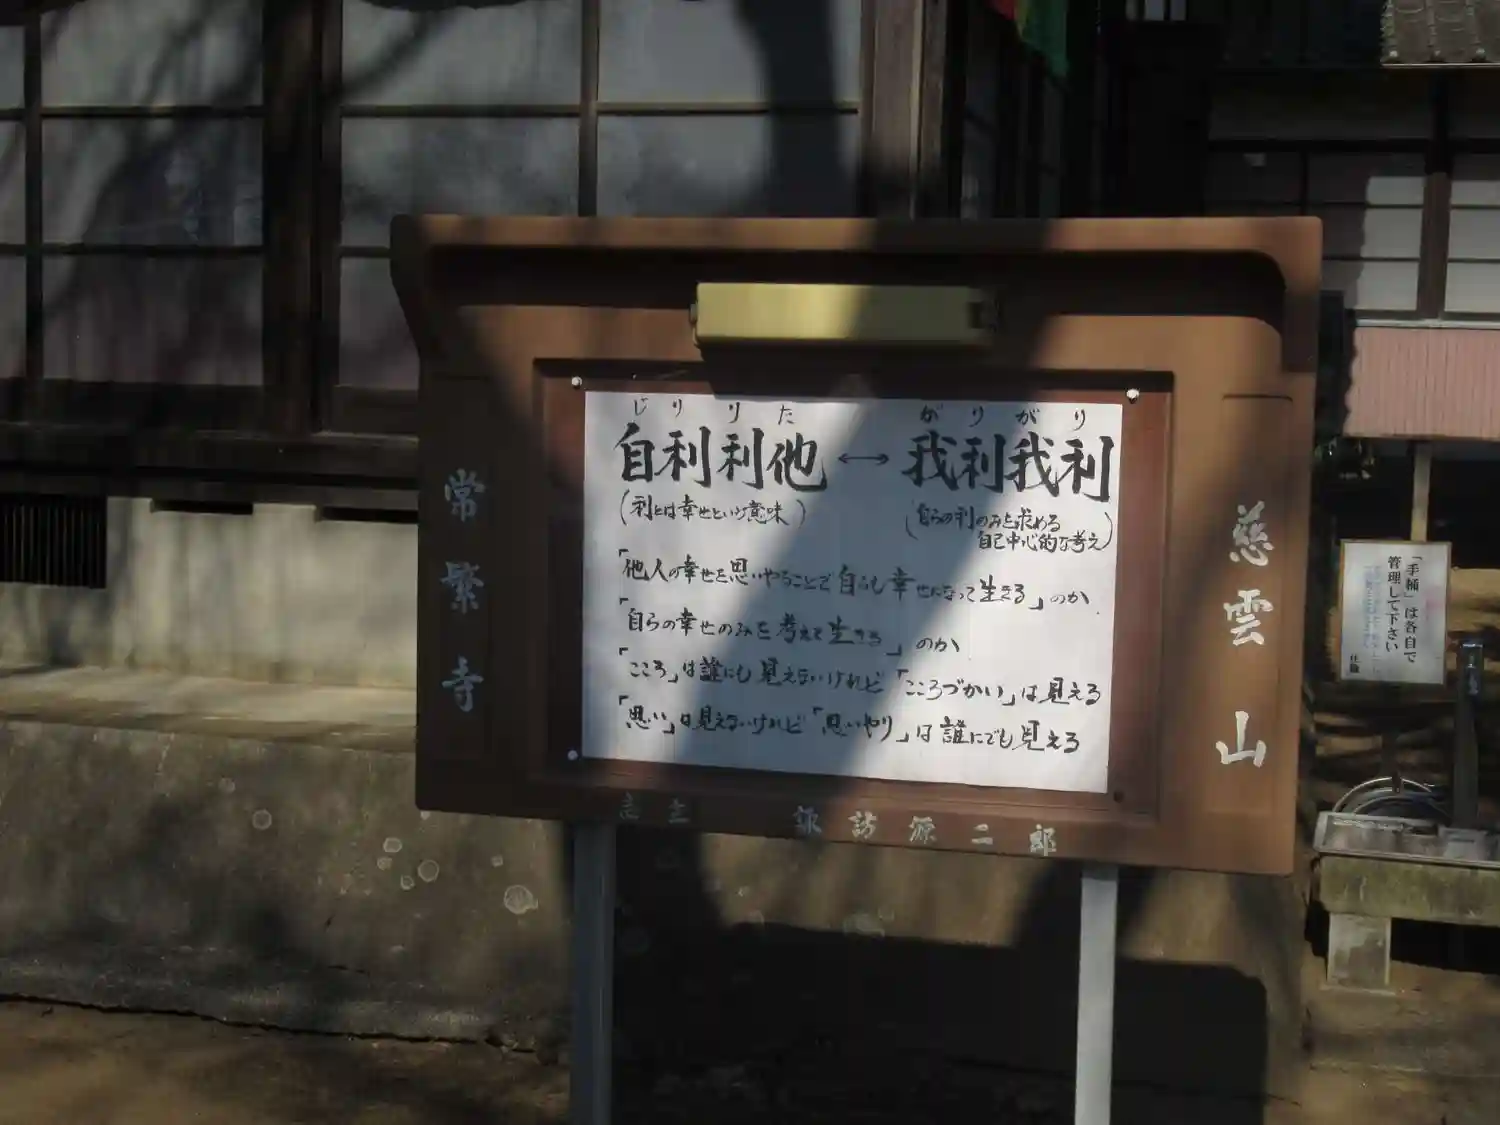 慈雲山
常繁寺
じりりた がりがり
自利利他 ↔ 我利我利
(利とは幸せという意味)
(自らの利のみを求める
自己中心的な考え)
「他人の幸せを思いやることで自らも幸せになって生きる」のか
「自らの幸せのみを考えて生きる」のか
「こころ」は誰にも見えないけれど「こころづかい」は見える
「思い」は見えないけれど「思いやり」は誰にでも見える
諏訪源二郎
「手桶」は各自で
管理して下さい
住職